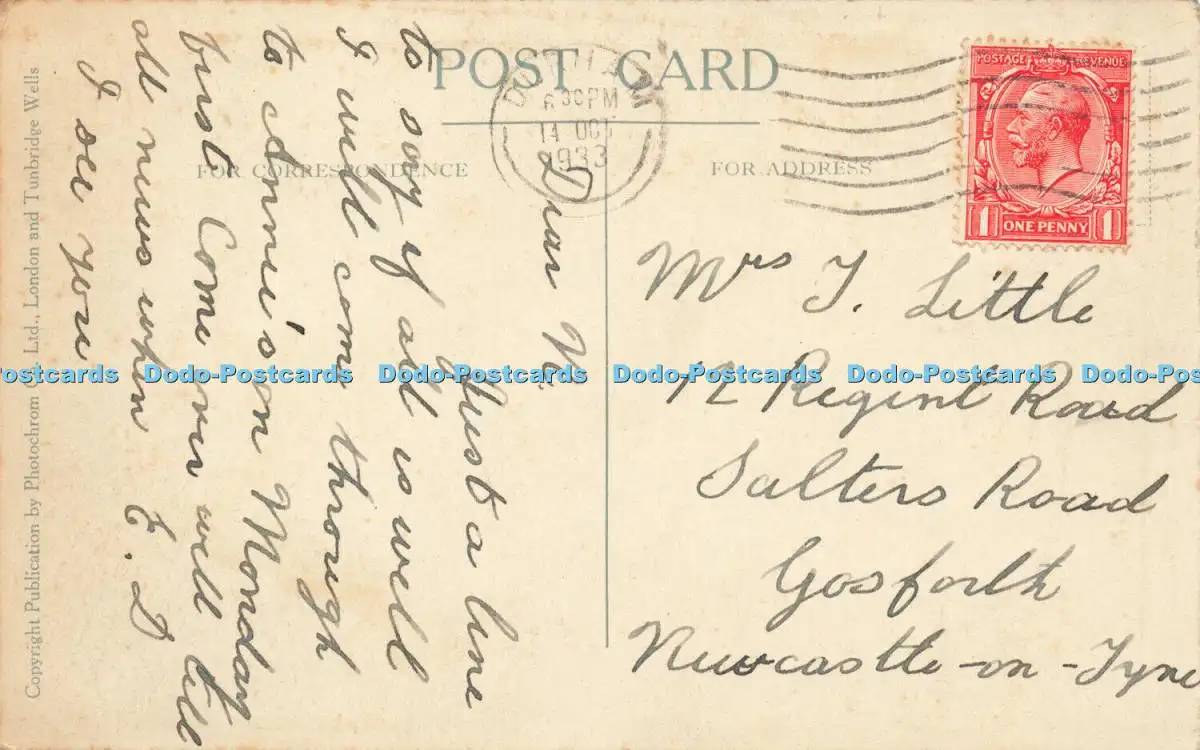 POST CARD
FOR CORRESPONDENCE
FOR ADDRESS
DURHAM
6 30 PM
14 OCT
1933
POSTAGE REVENUE
1 ONE PENNY 1
Dear N.
Just a line
to say if all is well
I will come through
to Annie's on Monday
first Come over will tell
all news when
I see you
E. D
Mrs J. Little
12 Regent Road
Salters Road
Gosforth
Newcastle-on-Tyne
Copyright Publication by Photochrom Co. Ltd., London and Tunbridge Wells
Postcards Dodo-Postcards Dodo-Postcards Dodo-Postcards Dodo-Postcards Dodo-Pos